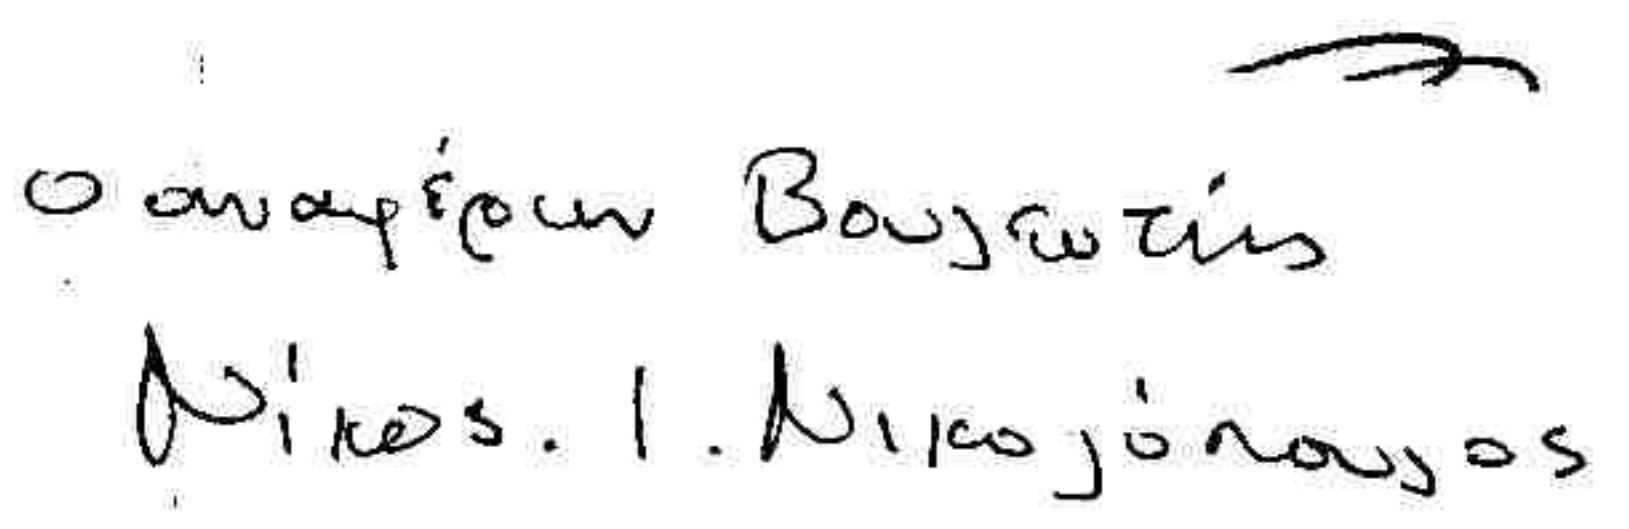 Ο αναφέρων Βουλευτής
Νίκος. Ι. Νικολόπουλος